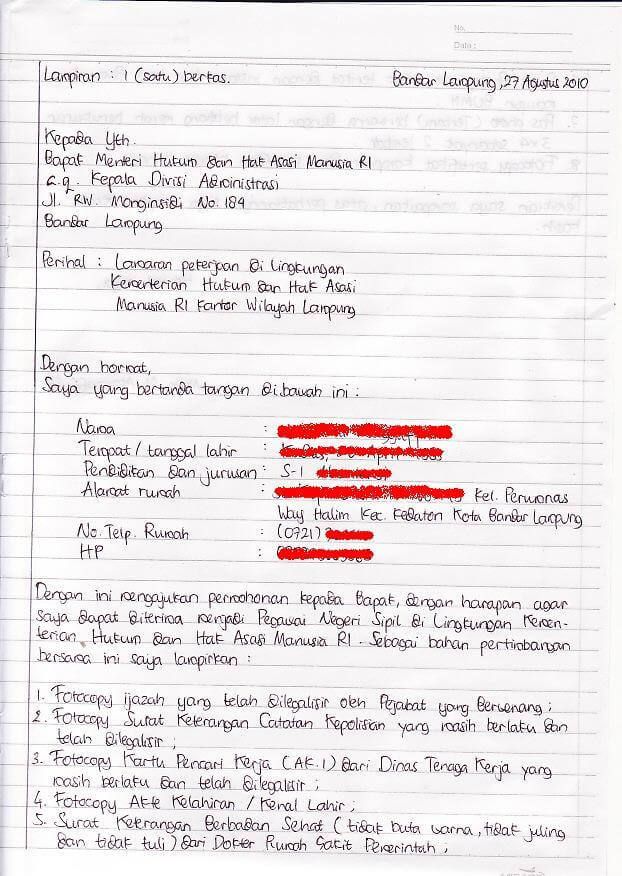 No.
Date :
Lampiran : 1 (satu) berkas. Bandar Lampung, 27 Agustus 2010
Kepada Yth.
Bapak Menteri Hukum dan Hak Asasi Manusia RI
c.q. Kepala Divisi Administrasi
Jl. RW. Monginsidi No. 184
Bandar Lampung
Perihal : Lamaran pekerjaan di Lingkungan
Kementerian Hukum dan Hak Asasi
Manusia RI Kantor Wilayah Lampung
Dengan hormat,
Saya yang bertanda tangan dibawah ini :
Nama :
Tempat / tanggal lahir :
Pendidikan dan jurusan : S-1
Alamat rumah : Kel. Perumnas
Way Halim Kec. Kedaton Kota Bandar Lampung
No. Telp. Rumah : (0721)
HP :
Dengan ini mengajukan permohonan kepada Bapak, dengan harapan agar
saya dapat diterima menjadi Pegawai Negeri Sipil di Lingkungan Kemen-
terian Hukum dan Hak Asasi Manusia RI. Sebagai bahan pertimbangan
bersama ini saya lampirkan :
1. Fotocopy ijazah yang telah dilegalisir oleh Pejabat yang Berwenang ;
2. Fotocopy Surat Keterangan Catatan Kepolisian yang masih berlaku dan
telah dilegalisir ;
3. Fotocopy Kartu Pencari Kerja (AK.1) dari Dinas Tenaga Kerja yang
masih berlaku dan telah dilegalisir ;
4. Fotocopy Akte Kelahiran / Kenal Lahir ;
5. Surat Keterangan Berbadan Sehat (tidak buta warna, tidak juling
dan tidak tuli) dari Dokter Rumah Sakit Pemerintah ;